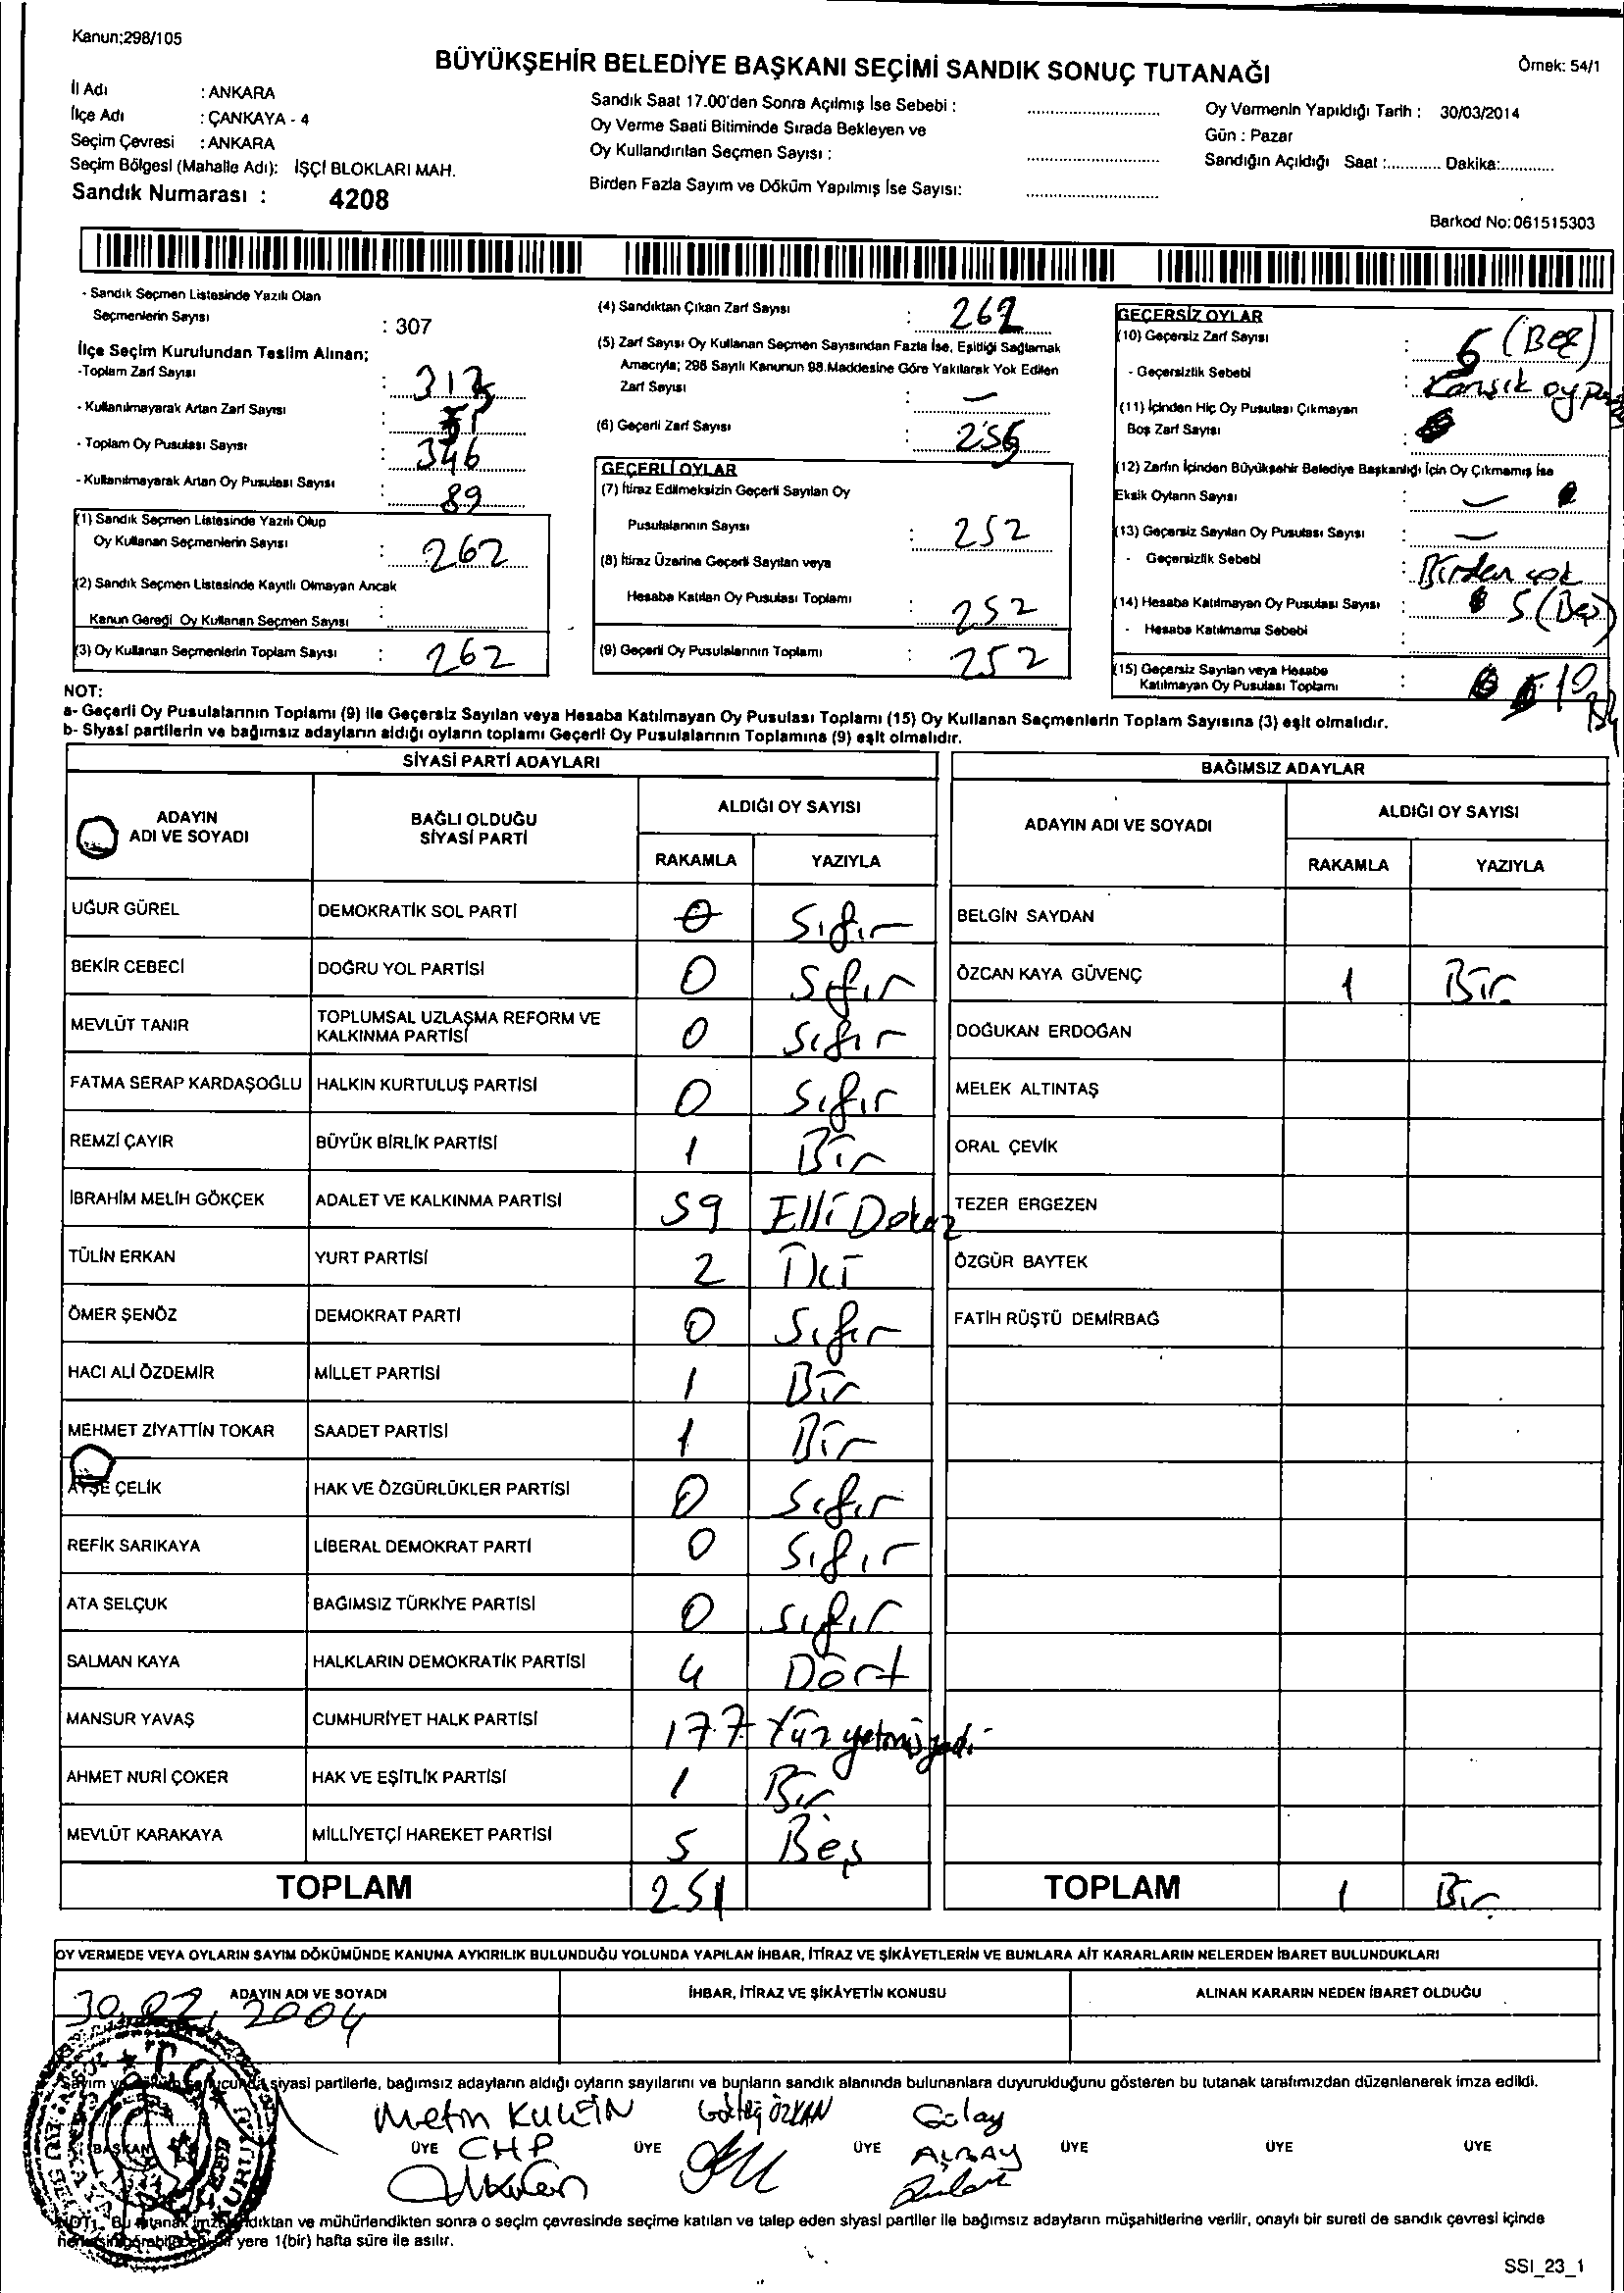 Kanun;298/105
BÜYÜKŞEHİR BELEDİYE BAŞKANI SEÇİMİ SANDIK SONUÇ TUTANAĞI
Örnek: 54/1
İl Adı : ANKARA
İlçe Adı : ÇANKAYA - 4
Seçim Çevresi : ANKARA
Seçim Bölgesi (Mahalle Adı): İŞÇİ BLOKLARI MAH.
Sandık Numarası : 4208
Sandık Saat 17.00'den Sonra Açılmış İse Sebebi :
Oy Verme Saati Bitiminde Sırada Bekleyen ve
Oy Kullandırılan Seçmen Sayısı :
Birden Fazla Sayım ve Döküm Yapılmış İse Sayısı:
Oy Vermenin Yapıldığı Tarih : 30/03/2014
Gün : Pazar
Sandığın Açıldığı Saat :............ Dakika:............
Barkod No:061515303
- Sandık Seçmen Listesinde Yazılı Olan
Seçmenlerin Sayısı : 307
İlçe Seçim Kurulundan Teslim Alınan;
-Toplam Zarf Sayısı :
- Kullanılmayarak Artan Zarf Sayısı :
- Toplam Oy Pusulası Sayısı : 346
- Kullanılmayarak Artan Oy Pusulası Sayısı 89
(1) Sandık Seçmen Listesinde Yazılı Olup
Oy Kullanan Seçmenlerin Sayısı : 262
(2) Sandık Seçmen Listesinde Kayıtlı Olmayan Ancak
Kanun Gereği Oy Kullanan Seçmen Sayısı :
(3) Oy Kullanan Seçmenlerin Toplam Sayısı : 262
(4) Sandıktan Çıkan Zarf Sayısı : 262
(5) Zarf Sayısı Oy Kullanan Seçmen Sayısından Fazla İse, Eşitliği Sağlamak
Amacıyla; 298 Sayılı Kanunun 98.Maddesine Göre Yakılarak Yok Edilen
Zarf Sayısı : —
(6) Geçerli Zarf Sayısı :
GEÇERLİ OYLAR
(7) İtiraz Edilmeksizin Geçerli Sayılan Oy
Pusulalarının Sayısı : 252
(8) İtiraz Üzerine Geçerli Sayılan veya
Hesaba Katılan Oy Pusulası Toplamı : 252
(9) Geçerli Oy Pusulalarının Toplamı : 252
GEÇERSİZ OYLAR
(10) Geçersiz Zarf Sayısı : 5 (Beş)
- Geçersizlik Sebebi : Karışık oy
(11) İçinden Hiç Oy Pusulası Çıkmayan
Boş Zarf Sayısı :
(12) Zarfın İçinden Büyükşehir Belediye Başkanlığı İçin Oy Çıkmamış İse
Eksik Oyların Sayısı : —
(13) Geçersiz Sayılan Oy Pusulası Sayısı : —
- Geçersizlik Sebebi : Birden çok
(14) Hesaba Katılmayan Oy Pusulası Sayısı : 5 (Beş)
- Hesaba Katılmama Sebebi :
(15) Geçersiz Sayılan veya Hesaba
Katılmayan Oy Pusulası Toplamı : 10
NOT:
a- Geçerli Oy Pusulalarının Toplamı (9) ile Geçersiz Sayılan veya Hesaba Katılmayan Oy Pusulası Toplamı (15) Oy Kullanan Seçmenlerin Toplam Sayısına (3) eşit olmalıdır.
b- Siyasi partilerin ve bağımsız adayların aldığı oyların toplamı Geçerli Oy Pusulalarının Toplamına (9) eşit olmalıdır.
SİYASİ PARTİ ADAYLARI
ADAYIN ADI VE SOYADI BAĞLI OLDUĞU SİYASİ PARTİ ALDIĞI OY SAYISI
RAKAMLA YAZIYLA
UĞUR GÜREL DEMOKRATİK SOL PARTİ 0 Sıfır
BEKİR CEBECİ DOĞRU YOL PARTİSİ 0 Sıfır
MEVLÜT TANIR TOPLUMSAL UZLAŞMA REFORM VE KALKINMA PARTİSİ 0 Sıfır
FATMA SERAP KARDAŞOĞLU HALKIN KURTULUŞ PARTİSİ 0 Sıfır
REMZİ ÇAYIR BÜYÜK BİRLİK PARTİSİ 1 Bir
İBRAHİM MELİH GÖKÇEK ADALET VE KALKINMA PARTİSİ 59 Elli Dokuz
TÜLİN ERKAN YURT PARTİSİ 2 İki
ÖMER ŞENÖZ DEMOKRAT PARTİ 0 Sıfır
HACI ALİ ÖZDEMİR MİLLET PARTİSİ 1 Bir
MEHMET ZİYATTİN TOKAR SAADET PARTİSİ 1 Bir
AYŞE ÇELİK HAK VE ÖZGÜRLÜKLER PARTİSİ 0 Sıfır
REFİK SARIKAYA LİBERAL DEMOKRAT PARTİ 0 Sıfır
ATA SELÇUK BAĞIMSIZ TÜRKİYE PARTİSİ 0 Sıfır
SALMAN KAYA HALKLARIN DEMOKRATİK PARTİSİ 4 Dört
MANSUR YAVAŞ CUMHURİYET HALK PARTİSİ 177 Yüz yetmiş yedi
AHMET NURİ ÇOKER HAK VE EŞİTLİK PARTİSİ 1 Bir
MEVLÜT KARAKAYA MİLLİYETÇİ HAREKET PARTİSİ 5 Beş
TOPLAM 251
BAĞIMSIZ ADAYLAR
ADAYIN ADI VE SOYADI ALDIĞI OY SAYISI
RAKAMLA YAZIYLA
BELGİN SAYDAN
ÖZCAN KAYA GÜVENÇ 1 Bir
DOĞUKAN ERDOĞAN
MELEK ALTINTAŞ
ORAL ÇEVİK
TEZER ERGEZEN
ÖZGÜR BAYTEK
FATİH RÜŞTÜ DEMİRBAĞ
TOPLAM 1 Bir
OY VERMEDE VEYA OYLARIN SAYIM DÖKÜMÜNDE KANUNA AYKIRILIK BULUNDUĞU YOLUNDA YAPILAN İHBAR, İTİRAZ VE ŞİKÂYETLERİN VE BUNLARA AİT KARARLARIN NELERDEN İBARET BULUNDUKLARI
ADAYIN ADI VE SOYADI İHBAR, İTİRAZ VE ŞİKÂYETİN KONUSU ALINAN KARARIN NEDEN İBARET OLDUĞU
30.02.2004
siyasi partilerle, bağımsız adayların aldığı oyların sayılarını ve bunların sandık alanında bulunanlara duyurulduğunu gösteren bu tutanak tarafımızdan düzenlenerek imza edildi.
Metin ÖZKAN Gülay
BAŞKAN ÜYE CHP ÜYE ÜYE ALBAY ÜYE ÜYE ÜYE
NOT: Bu tutanak ve mühürlendikten sonra o seçim çevresinde seçime katılan ve talep eden siyasi partiler ile bağımsız adayların müşahitlerine verilir, onaylı bir sureti de sandık çevresi içinde
yere 1(bir) hafta süre ile asılır.
SSI_23_1